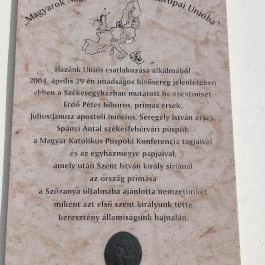 „Magyarok Európai Unióba"
Hazánk Uniós csatlakozása alkalmából
2004. április 29-én imádságos hívősereg jelenlétében
ebben a Székesegyházban mutatott be szentmisét
Erdő Péter bíboros, prímás érsek,
Juliusz Janusz apostoli nuncius, Seregély István érsek,
Spányi Antal székesfehérvári püspök
a Magyar Katolikus Püspöki Konferencia tagjaival
és az egyházmegye papjaival,
amely után Szent István király sírjánál
az ország prímása
a Szűzanya oltalmába ajánlotta nemzetünket
miként azt első szent királyunk tette
keresztény államiságunk hajnalán.